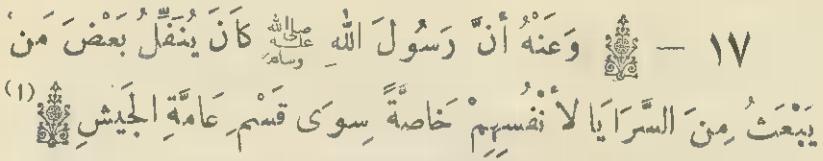 ١٧ – وَعَنْهُ أَنَّ رَسُولَ اللهِ ﷺ كَانَ يُنَفِّلُ بَعْضَ مَنْ
يَبْعَثُ مِنَ السَّرَايَا لأَنْفُسِهِمْ خَاصَّةً سِوَى قَسْمِ عَامَّةِ الجَيْشِ (١)